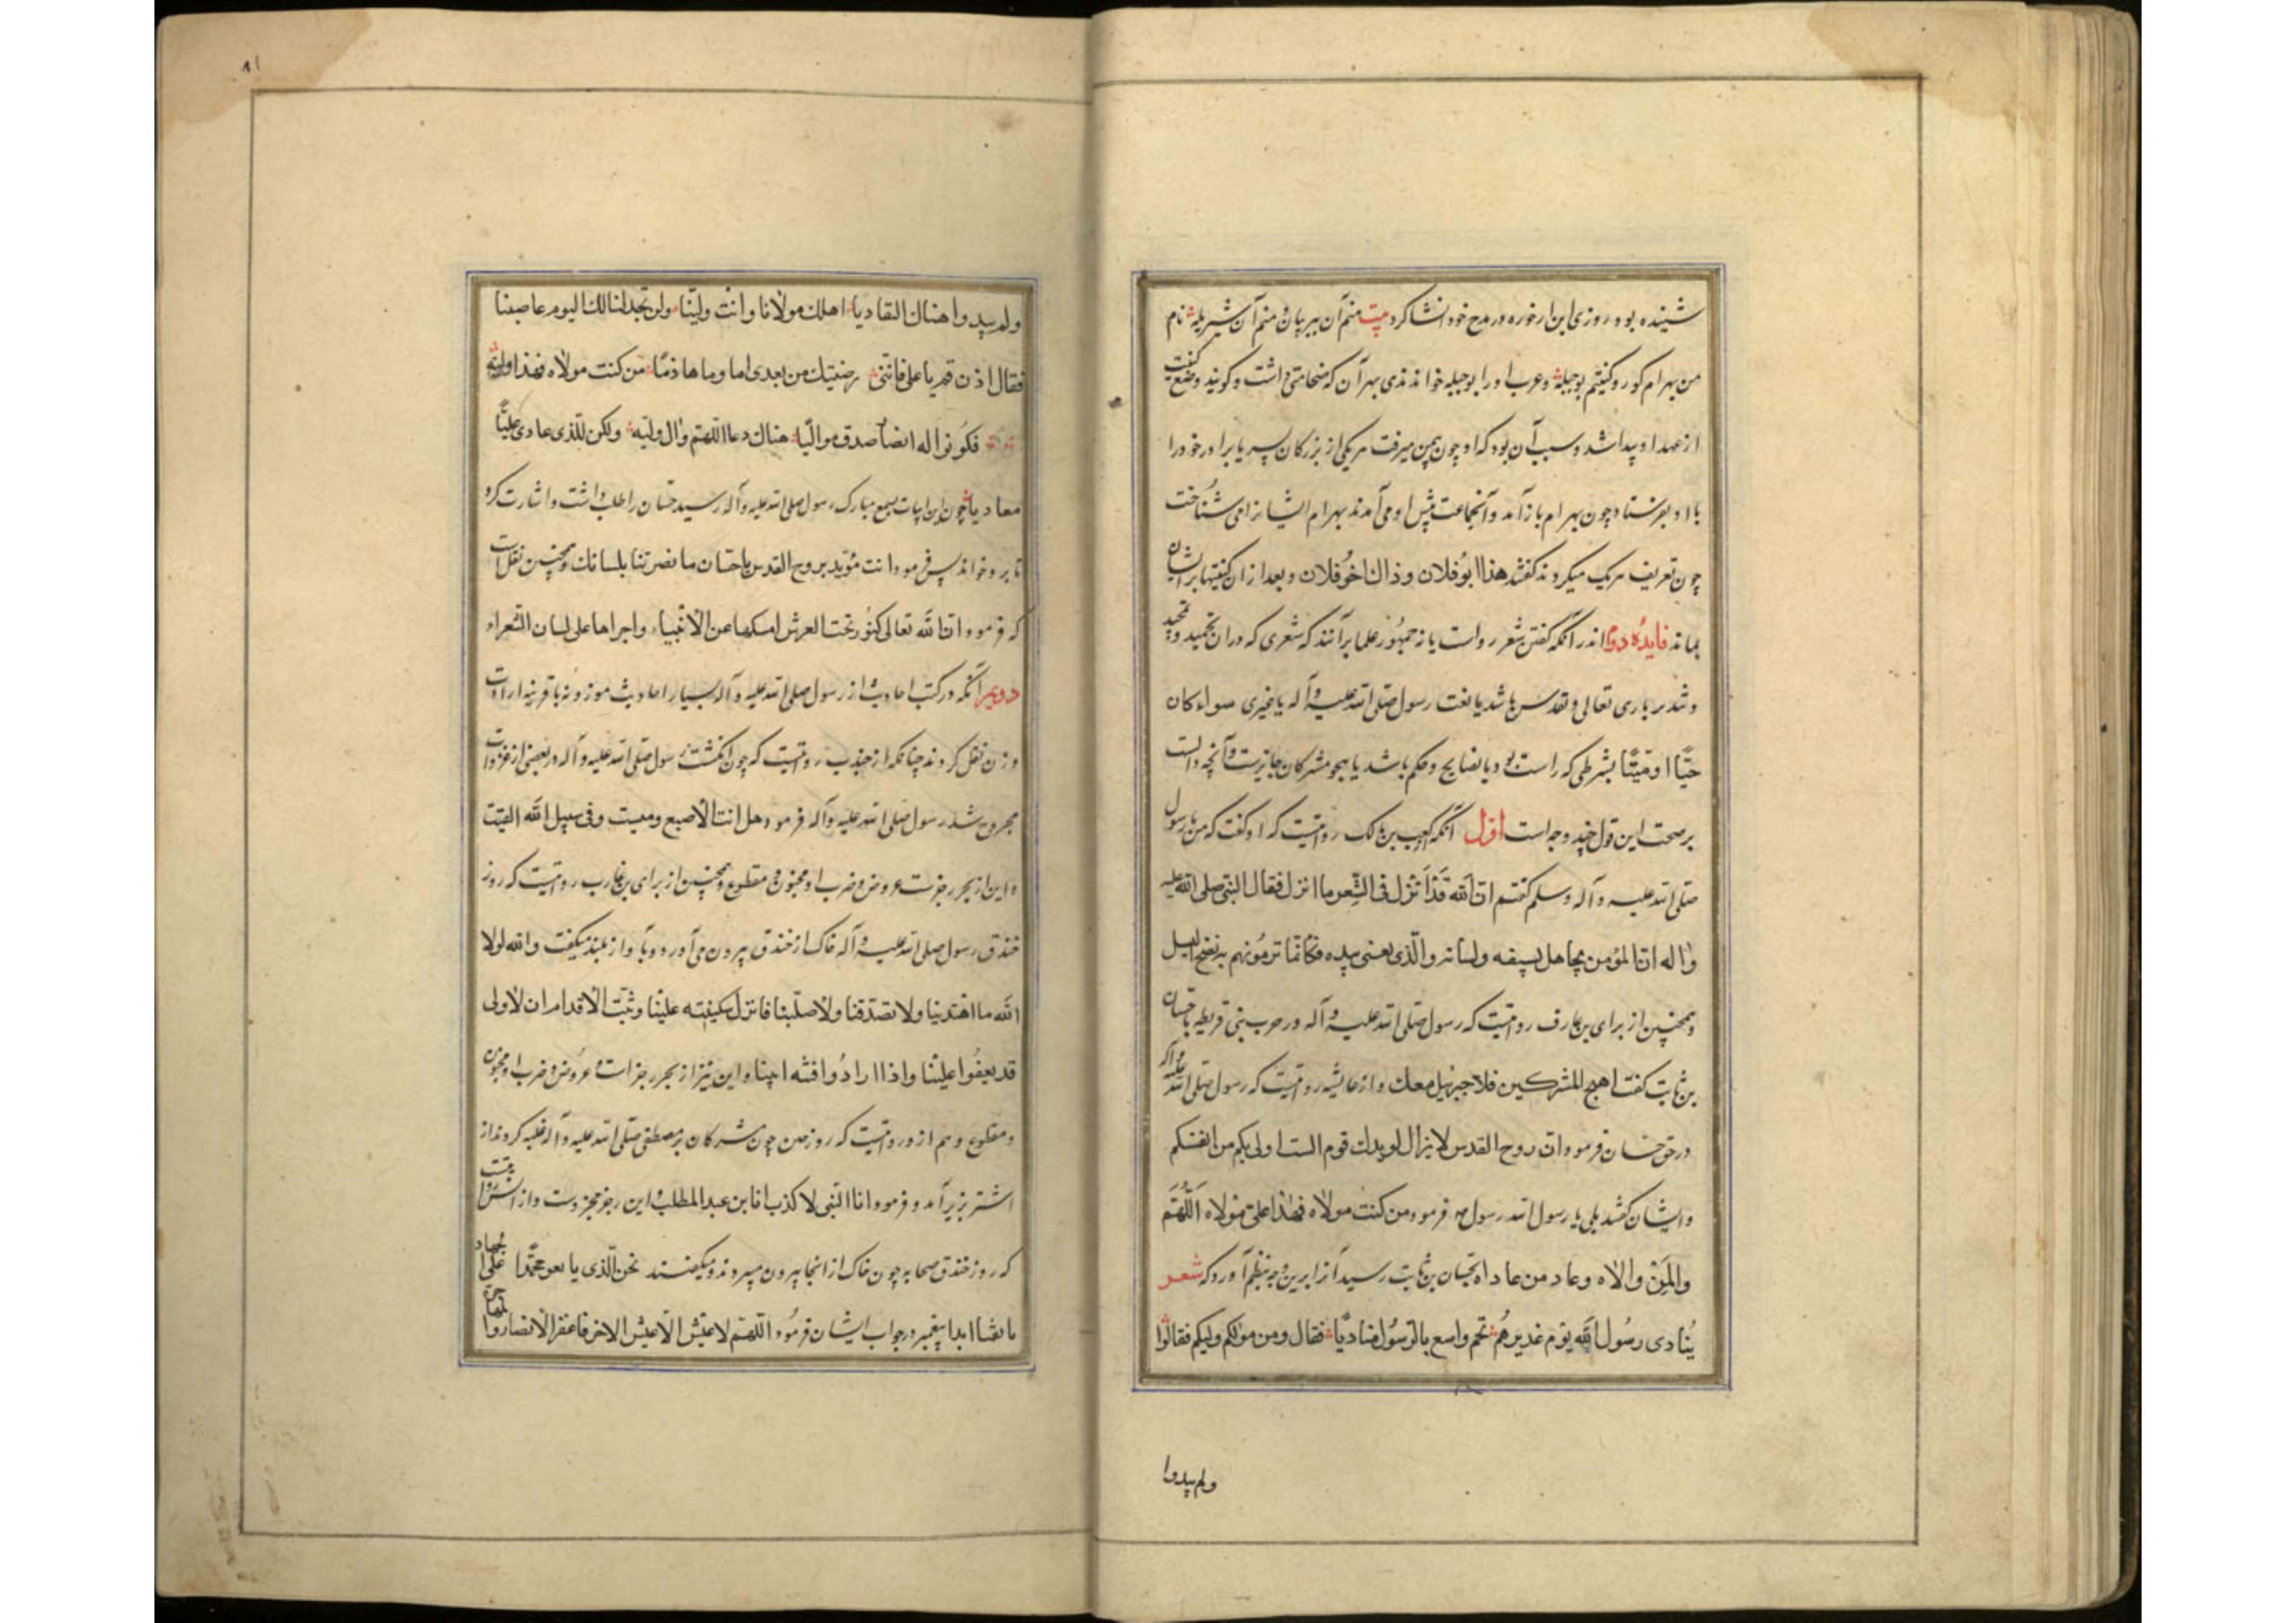 شینده بود روزی این ارخوره در مدح خود انشا کرد بیت منم آن ببر بیان منم آن شیر یله نام
من بهرام کور و کنیتم بوجبله وعرب اورا بوجبله خواندندی بهر آن که ضخامتی داشت و کویند وضع کنیت
از عهد او پیدا شد و سبب آن بود که او چون بیمن میرفت هر یکی از بزرکان پسر یا برادر خود را
با او بفرستاد چون بهرام باز آمد و آنجماعت پیش او می آمدند بهرام ایشانرا می شناخت
چون تعریف هر یک میکردند کفتند هذا ابوفلان وذاك اخوفلان و بعد از ان کنیتها بر ایشان
بماند فایده دوم اندر آنکه کفتن شعر رواست یا نه جمهور علما برآنند که شعری که دران تحمید و تمجید
باری تعالی و تقدس باشد یا نعت رسول صلی الله علیه وآله یا غیری سواء کان
حیّا او میّتا بشرطی که راست بود یا نصایح و حکم باشد یا هجو مشرکان جایزست و آنچه دالست
بر صحت این قول چند وجه است اول آنکه کعب بن مالک روایتست که او کفت که من با رسول
صلی الله علیه وآله وسلم کفتم ان الله قد انزل فی الشعر ما انزل فقال النبی صلی الله علیه
واله ان المؤمن یجاهل بسیفه ولسانه والذی نفسی بیده فکانما ترمونهم به نضح النبل
وهمچنین از برای بن عارف روایتست که رسول صلی الله علیه وآله در حرب بنی قریظه با حسان
بن ثابت کفت اهج المشرکین فلا جبرئیل معك و از عایشه روایتست که رسول صلی الله علیه وآله
در حق حسان فرمود ان روح القدس لا یزال یویدك قوم الست اولی بکم من انفسکم
و ایشان کفتند بلی یا رسول الله رسول فرمود من کنت مولاه فهذا علی مولاه اللهم
وال من والاه وعاد من عاداه بحسان بن ثابت رسید آنرا برین وجه بنظم آورد که شعر
ینادی رسول الله یوم غدیرهم بخم واسمع بالرسول منادیا فقال ومن مولکم ولیکم فقالوا
ولم یبدوا
ولم یبدوا هناك التقادیا اهلك مولانا وانت ولینا ولن تجد لنا لك الیوم عاصینا
فقال اذن قم یا علی فاننی رضیتك من بعدی اماما وهادیا من کنت مولاه فهذا ولیه
فکونوا له انصار صدق موالیا هناك دعا اللهم وال ولیه وکن للذی عادی علیّا
معادیا چون این ابیات بسمع مبارک رسول صلی الله علیه وآله رسید حسان را طلب داشت و اشارت کرد
تا برو خواند پس فرمود انت مؤید بروح القدس یا حسان ما نصرتنا بلسانك وهمچنین نقلست
که فرمود ان الله تعالی کنوز تحت العرش امسکها عن الانبیاء واجراها علی لسان الشعراء
دویم آنکه در کتب احادیث از رسول صلی الله علیه وآله بسیار احادیث موزونه با قرینه اراات
وزن نقل کرده‌اند چنانکه از جندب روایتست که چون انکشت رسول صلی الله علیه وآله در بعضی از غزوات
مجروح شد رسول صلی الله علیه وآله فرمود هل انت الا صبع ومیت وفی سبیل الله القیت
و این از بحر رجزست عروض و ضرب او مخبون و مقطوع وهمچنین از برای بن عارب روایتست که روز
خندق رسول صلی الله علیه وآله خاک از خندق بیرون می آورد و بآواز بلند میکفت والله لولا
الله ما اهتدینا ولا تصدقنا ولا صلینا فانزل سکینته علینا وثبت الاقدام ان لاولی
قد بعفوا علینا واذا ارادوا فتنه ابینا و این نیز از بحر رجز است و عروض و ضرب او مخبون
و مقطوع و هم ازو روایتست که روز حنین چون مشرکان بر مصطفی صلی الله علیه وآله غلبه کردند از
اشتر بزیر آمد و فرمود انا النبی لا کذب انا بن عبد المطلب و این رجز مجزوست و از انس روایتست
که روز خندق صحابه چون خاک از انجا بیرون میبردند و میکفتند نحن الذی بایعو محمّدا علی الجهاد
ما بقینا ابدا پیغمبر در جواب ایشان فرمود اللهم لا عیش الا عیش الاخر فاغفر الانصار والمهاجره